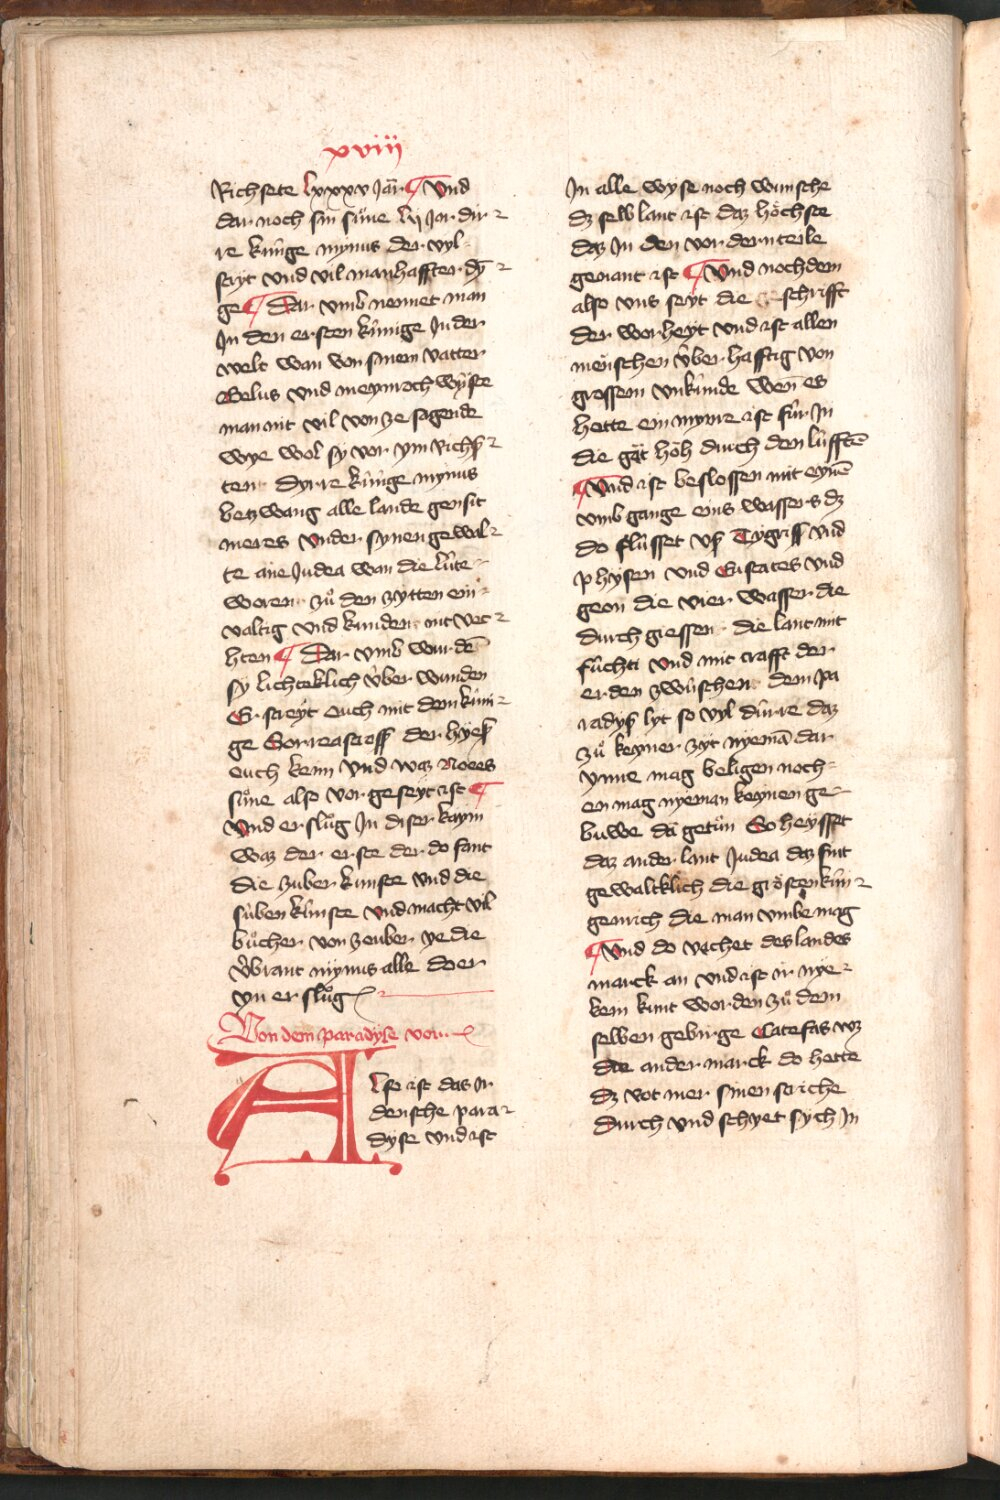 xviii
Richsete lxxxv Jar ¶ Vnd
dar noch sin sůne lij Jor dir⸗
re kúnge nynus der vyl⸗
stryt vnd vil manhaffter dȳ⸗
ge ¶ Dar vmb nennet man
Jn den ersten kúnige Jn der
welt wan von sinem vatter
Belus vnd meymroch wyste
man nit vil von ze sagende
wye wol sy vor ym Richse⸗
ten dyrre kúnge nynus
betzwang alle lande gensit
meres vnder synen gewal⸗
te ane Judea wan die lúte
woren zů den zytten ein⸗
valtig vnd kunden nit vec⸗
hten ¶ Dar vmb wurdē
sy lichteklich v́ber wunden
Er streyt ouch mit dem kúni⸗
ge Sorreastress der hyess
ouch kem vnd waz Noees
sůne also vor geseyt ist ¶
Vnd er slůg Jn diser kaym
waz der erste der do fant
die zuber kunste vnd die
súben kúnste vnd macht vil
bůcher von zouber ye die
v́brant nynus alle do er
yn er slůg
Von dem paradyse vor..
Also ist das Jr
densche para⸗
dyse vnd ist
Jn alle wyse noch wunsche
dz selb lant ist daz höchste
daz Jn den vordern teile
genant ist ¶ Vnd noch dem
also vns seyt die geschrifft
der worheyt vnd ist allen
menschen v́ber hafftig von
grossem vnkúnde wen̄ es
hette ein myure ist fúr Jn
die gat höh durch den lúfftē
¶ Vnd ist beslossen mit eynē
vmb gange eins wassers dz
do flússet vss Tygriss vnd
physen vnd Eufrates vnd
geon die vier wasser die
durch giessen die lant mit
fúchti vnd mit crafft der
erden zwúschen dem pa
radyss lyt so vyl dúrre daz
zů keyner zyt nyemā dar
ynne mag beligen noch⸗
en mag nyeman keynen ge⸗
buwe da getún So heysset
daz ander lant Judea daz sint
gewaltklich die gröstenkúni⸗
genrich die man vmbe mag
¶ Vnd do vechet des landes
marck an vnd ist ir nye⸗
kein kunt worden zů dem
selben gebirge Catefas vz
die ander marck do hette
dz rot mer sinen striche
durch vnd schyet sych Jn